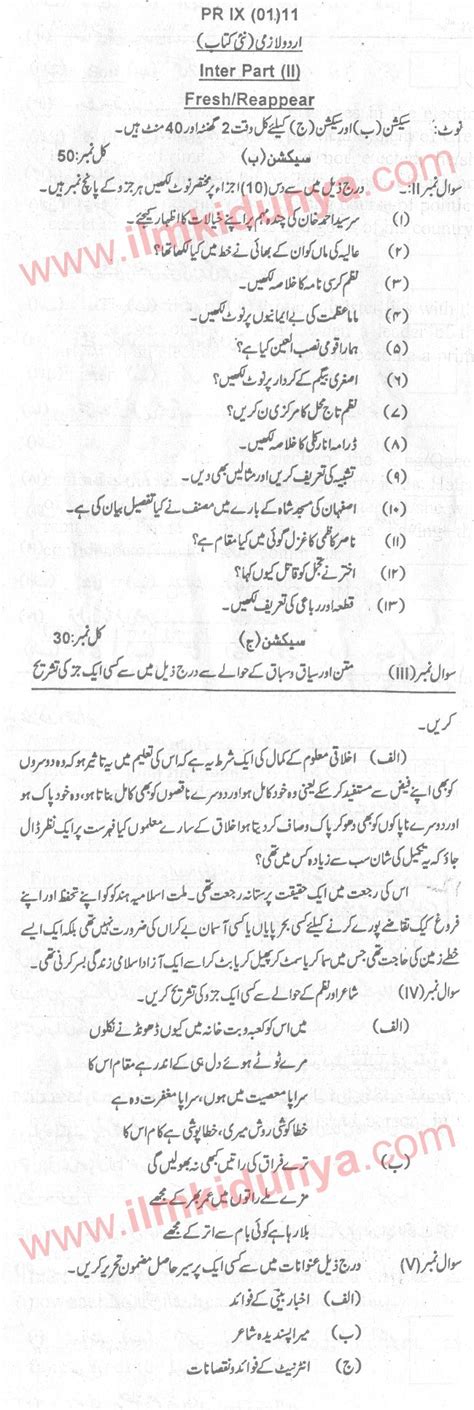 PR IX (01.)11
اردو لازمی (نئی کتاب)
Inter Part (II)
Fresh/Reappear
نوٹ: سیکشن (ب) اور سیکشن (ج) کیلئے کل وقت 2 گھنٹہ اور 40 منٹ ہیں۔
سیکشن (ب) کل نمبر: 50
سوال نمبر II: درج ذیل میں سے دس (10) اجزاء پر مختصر نوٹ لکھیں ہر جزو کے پانچ نمبر ہیں۔
(۱) سر سید احمد خان کی چندہ مہم پر اپنے خیالات کا اظہار کیجئے۔
(۲) عالیہ کی ماں کو ان کے بھائی نے خط میں کیا لکھا تھا؟
(۳) نظم کرسی نامہ کا خلاصہ لکھیں۔
(۴) ماما عظمت کی بے ایمانیوں پر نوٹ لکھیں۔
(۵) ہمارا قومی نصب العین کیا ہے؟
(۶) اصغری بیگم کے کردار پر نوٹ لکھیں؟
(۷) نظم تاج محل کا مرکزی ن کریں؟
(۸) ڈرامہ انارکلی کا خلاصہ لکھیں۔
(۹) تشبیہ کی تعریف کریں اور مثالیں بھی دیں۔
(۱۰) اصفہان کی مسجد شاہ کے بارے میں مصنف نے کیا تفصیل بیان کی ہے۔
(۱۱) ناصر کاظمی کا غزل گوئی میں کیا مقام ہے؟
(۱۲) اختر نے تجمل کو قاتل کیوں کہا؟
(۱۳) قطعہ اور رباعی کی تعریف لکھیں۔
سیکشن (ج) کل نمبر: 30
سوال نمبر (III) متن اور سیاق و سباق کے حوالے سے درج ذیل میں سے کسی ایک جز کی تشریح
کریں۔
(الف) اخلاقی معلوم کے کمال کی ایک شرط یہ ہے کہ اس کی تعلیم میں یہ تاثیر ہو کہ وہ دوسروں
کو بھی اپنے فیض سے مستفید کر سکے یعنی وہ خود کامل ہو اور دوسرے ناقصوں کو بھی کامل بناتا ہو، وہ خود پاک ہو
اور دوسرے ناپاکوں کو بھی دھو کر پاک و صاف کر دیتا ہو اخلاق کے سارے معلموں کیا فہرست پر ایک نظر ڈال
جاؤ کہ یہ تکمیل کی شان سب سے زیادہ کس میں تھی؟
اس کی رجعت میں ایک حقیقت پرستانہ رجعت تھی۔ ملت اسلامیہ ہند کو اپنے تحفظ اور اپنے
فروغ کیک تقاضے پورے کرنے کیلئے کسی بحر پایاں یا کسی آسمان بے کراں کی ضرورت نہیں تھی بلکہ ایک ایسے
خطہ زمین کی حاجت تھی جس میں سما کر یا سمٹ کر پھیل کر یا بٹ کر اسے ایک آزاد اسلامی زندگی بسر کرنی تھی۔
سوال نمبر (IV) شاعر اور نظم کے حوالے سے کسی ایک جزو کی تشریح کریں۔
(الف) میں اس کو کعبہ و بت خانہ میں کیوں ڈھونڈنے نکلوں
مرے ٹوٹے ہوئے دل ہی کے اندر ہے مقام اس کا
سراپا معصیت میں ہوں، سراپا مغفرت وہ ہے
خطا کوشی روش میری، خطا پوشی ہے کام اس کا
(ب) ترے فراق کی راتیں کبھی نہ بھولیں گی
مزے ملے راتوں میں عمر بھر کے مجھے
بلا رہا ہے کوئی بام سے اتر کے مجھے
سوال نمبر (V) درج ذیل عنوانات میں سے کسی ایک پر سیر حاصل مضمون تحریر کریں۔
(الف) اخبار بینی کے فوائد
(ب) میرا پسندیدہ شاعر
(ج) انٹرنیٹ کے فوائد و نقصانات
www.ilmkidunya.com
www.ilmkidunya.com